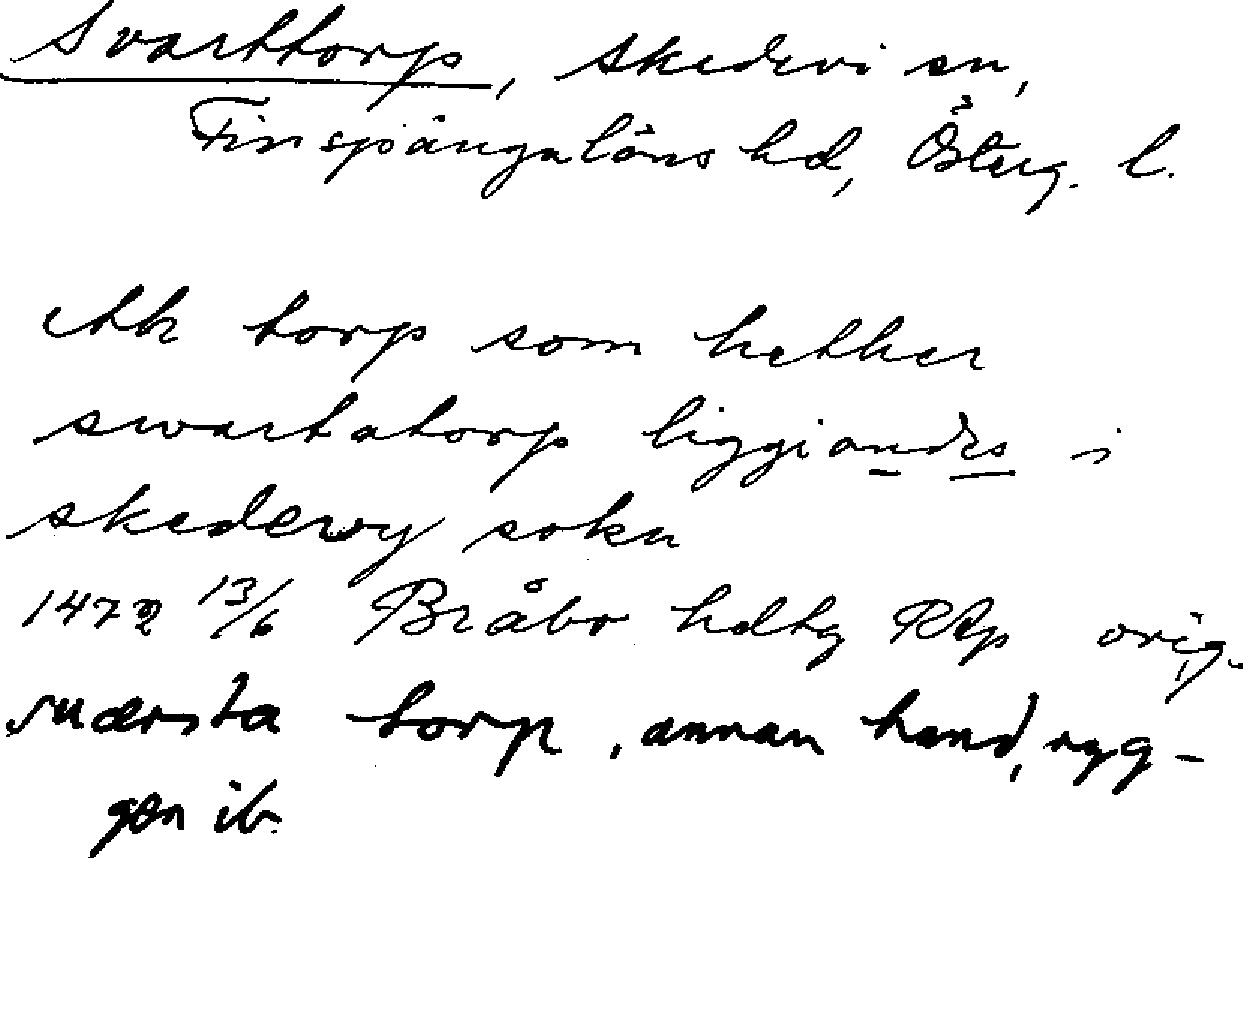 Svarttorp, Skedevi sn,
Finspångalöns hd, Österg. l.
ett torp som hether
swartatorp liggiandes i
skedewy sokn
1472 13/6 Bråbo hdtg RAp orig.
suærsta torp, annan hand, ryg-
gen ib.